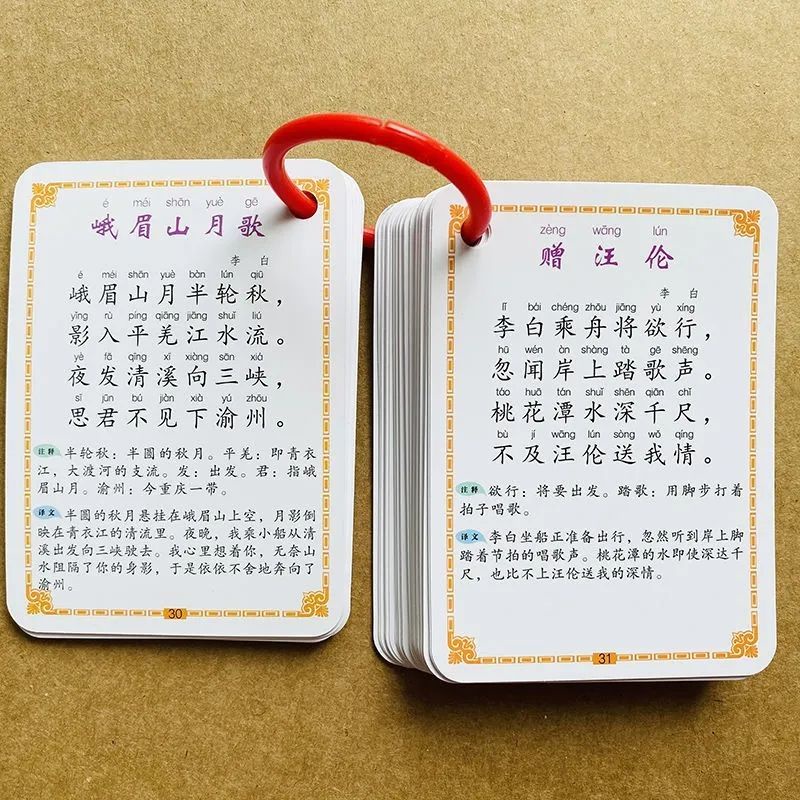 é méi shān yuè gē
峨眉山月歌
李白
é méi shān yuè bàn lún qiū
峨眉山月半轮秋，
yǐng rù píng qiāng jiāng shuǐ liú
影入平羌江水流。
yè fā qīng xī xiàng sān xiá
夜发清溪向三峡，
sī jūn bú jiàn xià yú zhōu
思君不见下渝州。
注释 半轮秋：半圆的秋月。平羌：即青衣
江，大渡河的支流。发：出发。君：指峨
眉山月。渝州：今重庆一带。
译文 半圆的秋月悬挂在峨眉山上空，月影倒
映在青衣江的清流里。夜晚，我乘小船从清
溪出发向三峡驶去。我心里想着你，无奈山
水阻隔了你的身影，于是依依不舍地奔向了
渝州。
30
zèng wāng lún
赠汪伦
李白
lǐ bái chéng zhōu jiāng yù xíng
李白乘舟将欲行，
hū wén àn shàng tà gē shēng
忽闻岸上踏歌声。
táo huā tán shuǐ shēn qiān chǐ
桃花潭水深千尺，
bù jí wāng lún sòng wǒ qíng
不及汪伦送我情。
注释 欲行：将要出发。踏歌：用脚步打着
拍子唱歌。
译文 李白坐船正准备出行，忽然听到岸上脚
踏着节拍的唱歌声。桃花潭的水即使深达千
尺，也比不上汪伦送我的深情。
31